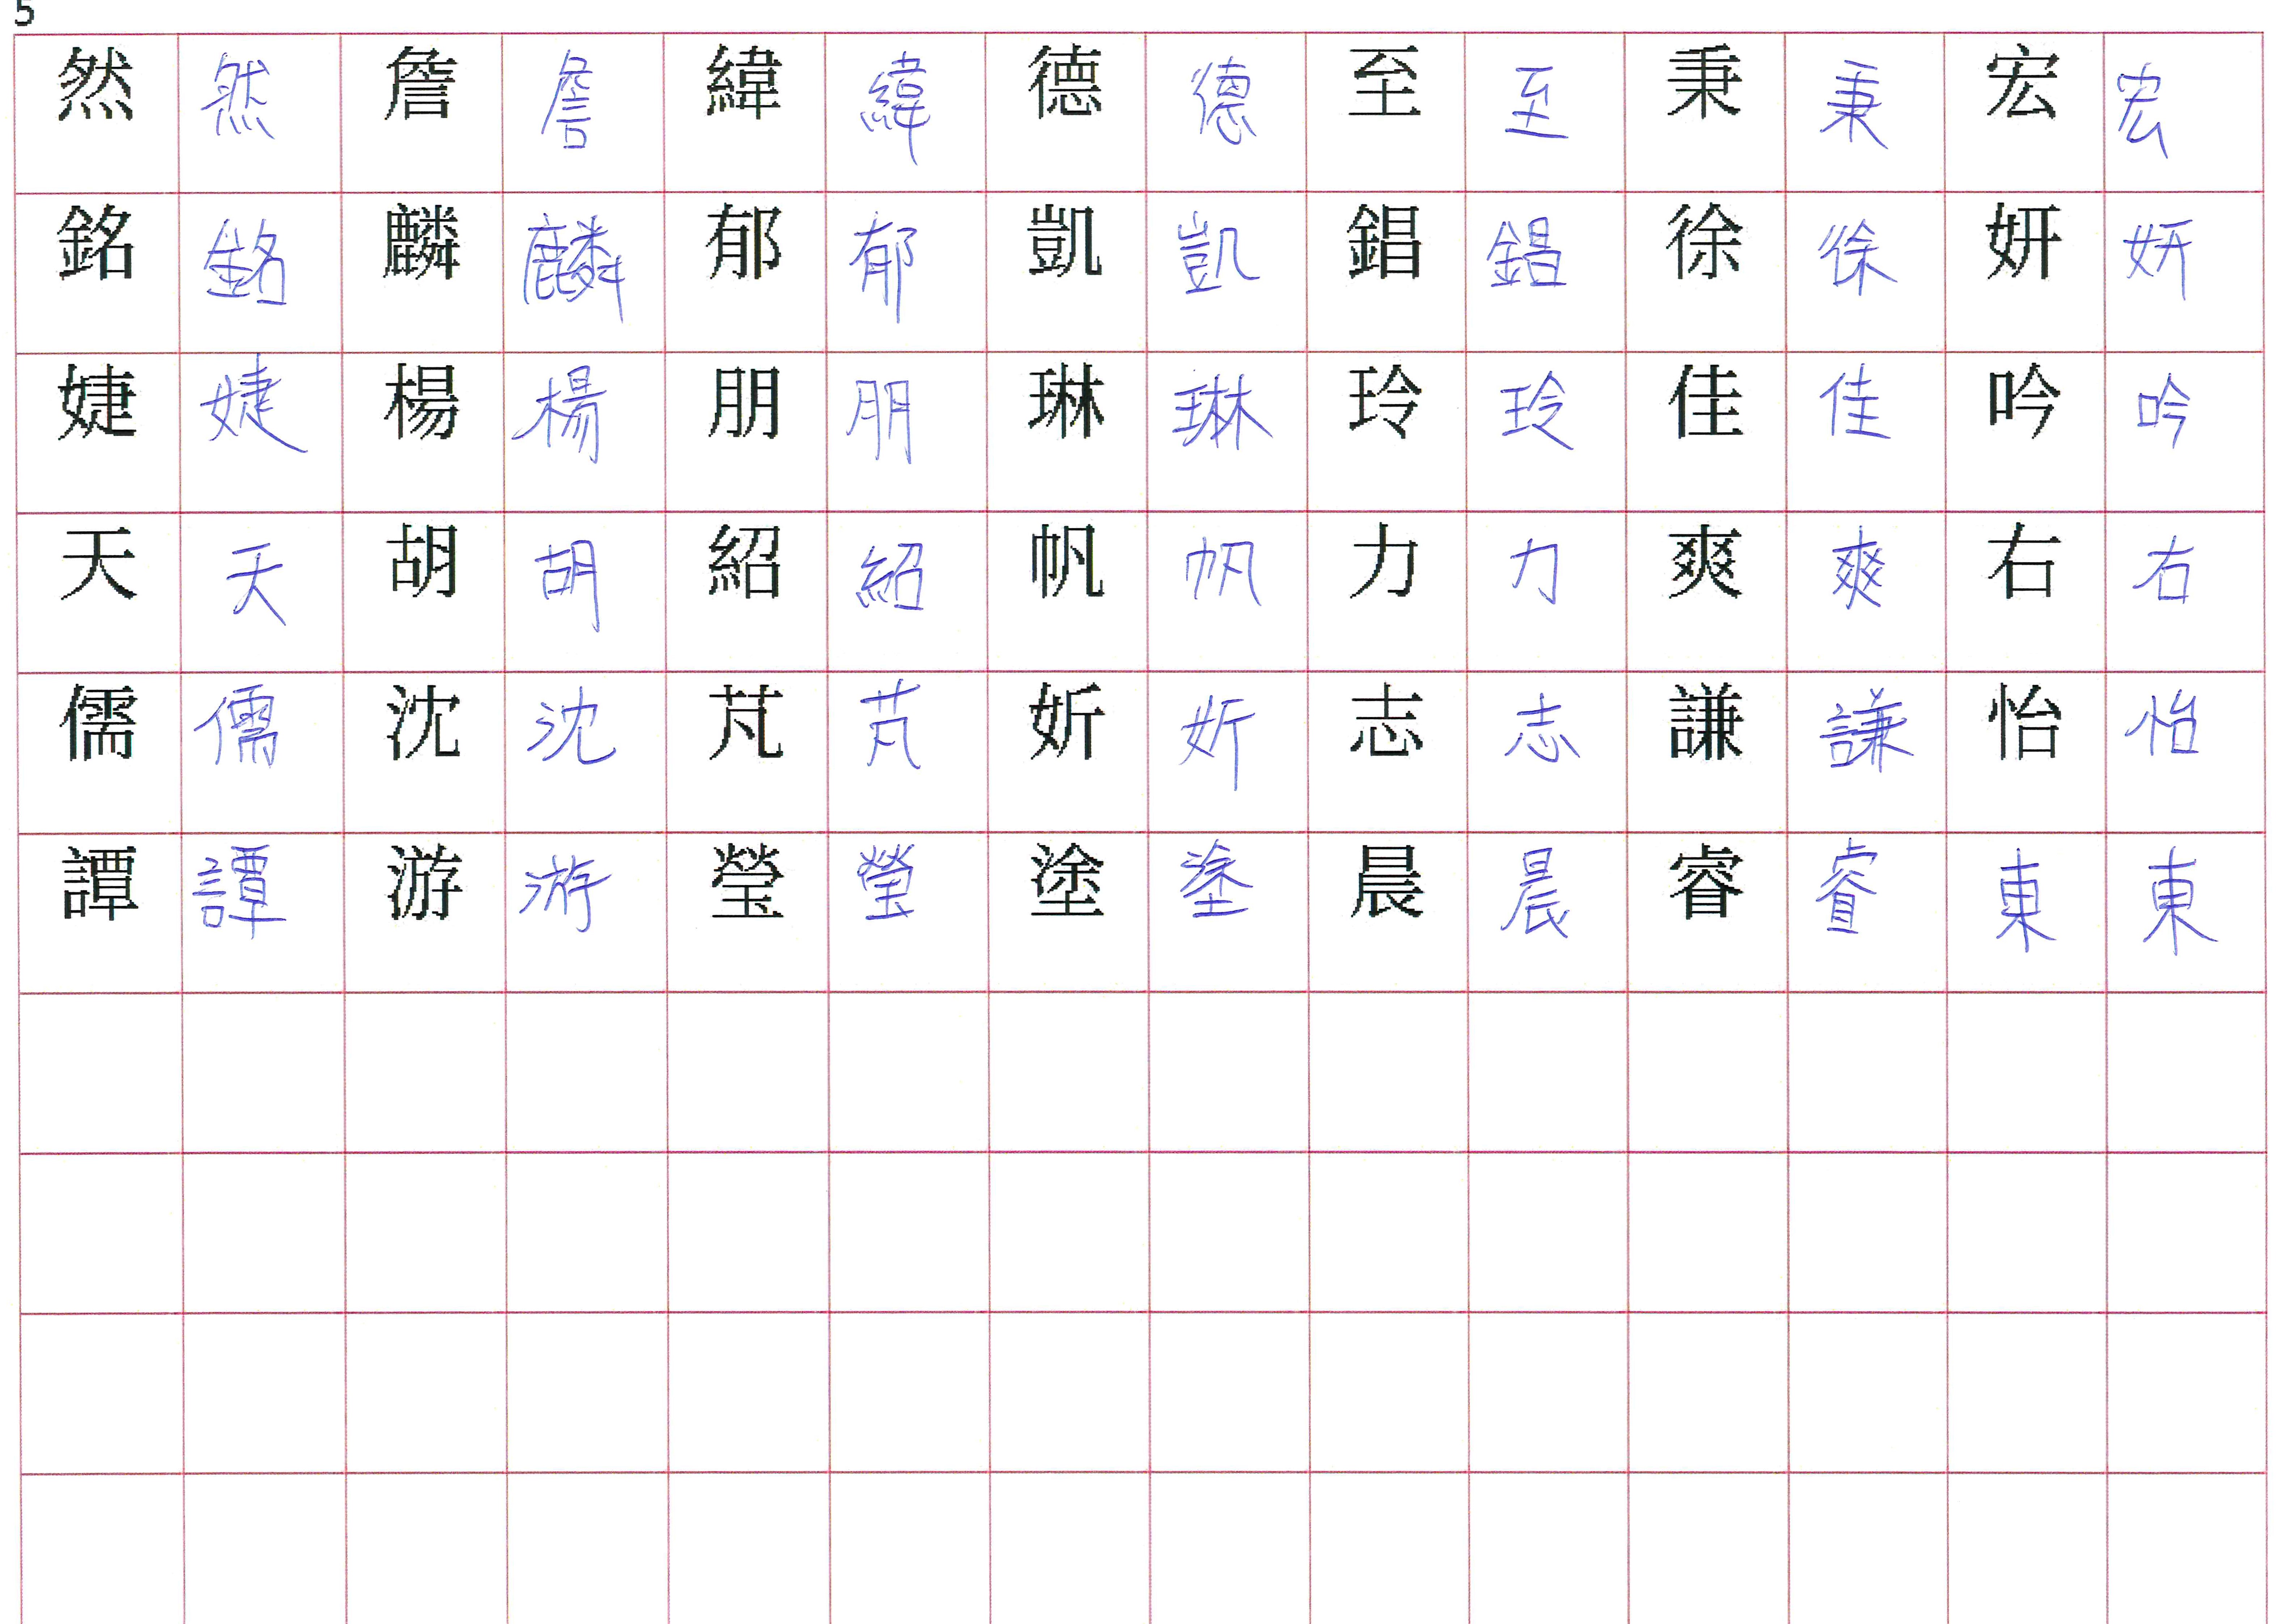 5
然 然 詹 詹 緯 緯 德 德 至 至 秉 秉 宏 宏
銘 銘 麟 麟 郁 郁 凱 凱 錩 錩 徐 徐 妍 妍
婕 婕 楊 楊 朋 朋 琳 琳 玲 玲 佳 佳 吟 吟
天 天 胡 胡 紹 紹 帆 帆 力 力 爽 爽 右 右
儒 儒 沈 沈 芃 芃 妡 妡 志 志 謙 謙 怡 怡
譚 譚 游 游 瑩 瑩 塗 塗 晨 晨 睿 睿 東 東